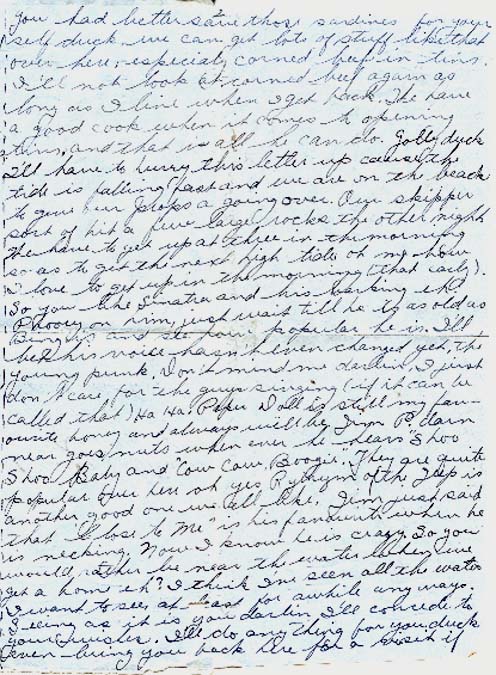 you had better save those sardines for your
self duck. we can get lots of stuff like that
over here, especialy corned beef in tins.
I'll not look at corned beef again as
long as I live when I get back. We have
a good cook when it comes to opening
tins, and that is all he can do. Golly duck
I'll have to hurry this letter up cause the
tide is falling fast and we are on the beach
to give our props a going over. Our skipper
sort of hit a few large rocks the other night
We have to get up at three in the morning
so as to get the next high tide oh my how
I love to get up in the morning (that early).
So you like Sinatra and his barking eh?
Phooey on him, just wait till he is as old as
Bing is and see how popular he is. I'll
bet his voice hasn't even changed yet, the
young punk. Don't mind me darlin, I just
don't care for the guys singing (if it can be
called that) Ha Ha. Paper Doll is still my fav-
ourite honey and always will be. Jim P. darn
near goes nuts when ever he hears "Shoo
Shoo Baby and "Cow Cow Boogie". They are quite
popular over here oh yes Rythym of the Jeep is
another good one we all like. Jim just said
that "Close to Me" is his favourite when he
is necking. Now I know he is crazy. So you
would rather be near the water when we
get a home eh? I think I've seen all the water
I want to see at last for awhile any ways.
Seeing as it is you darlin I'll concede to
your wishes. I'll do any thing for you duck
even bring you back here for a visit if